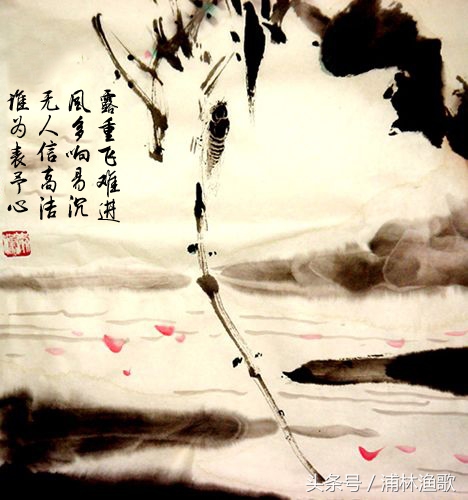 露重飞难进
风多响易沉
无人信高洁
谁为表予心
头条号／浦林渔歌